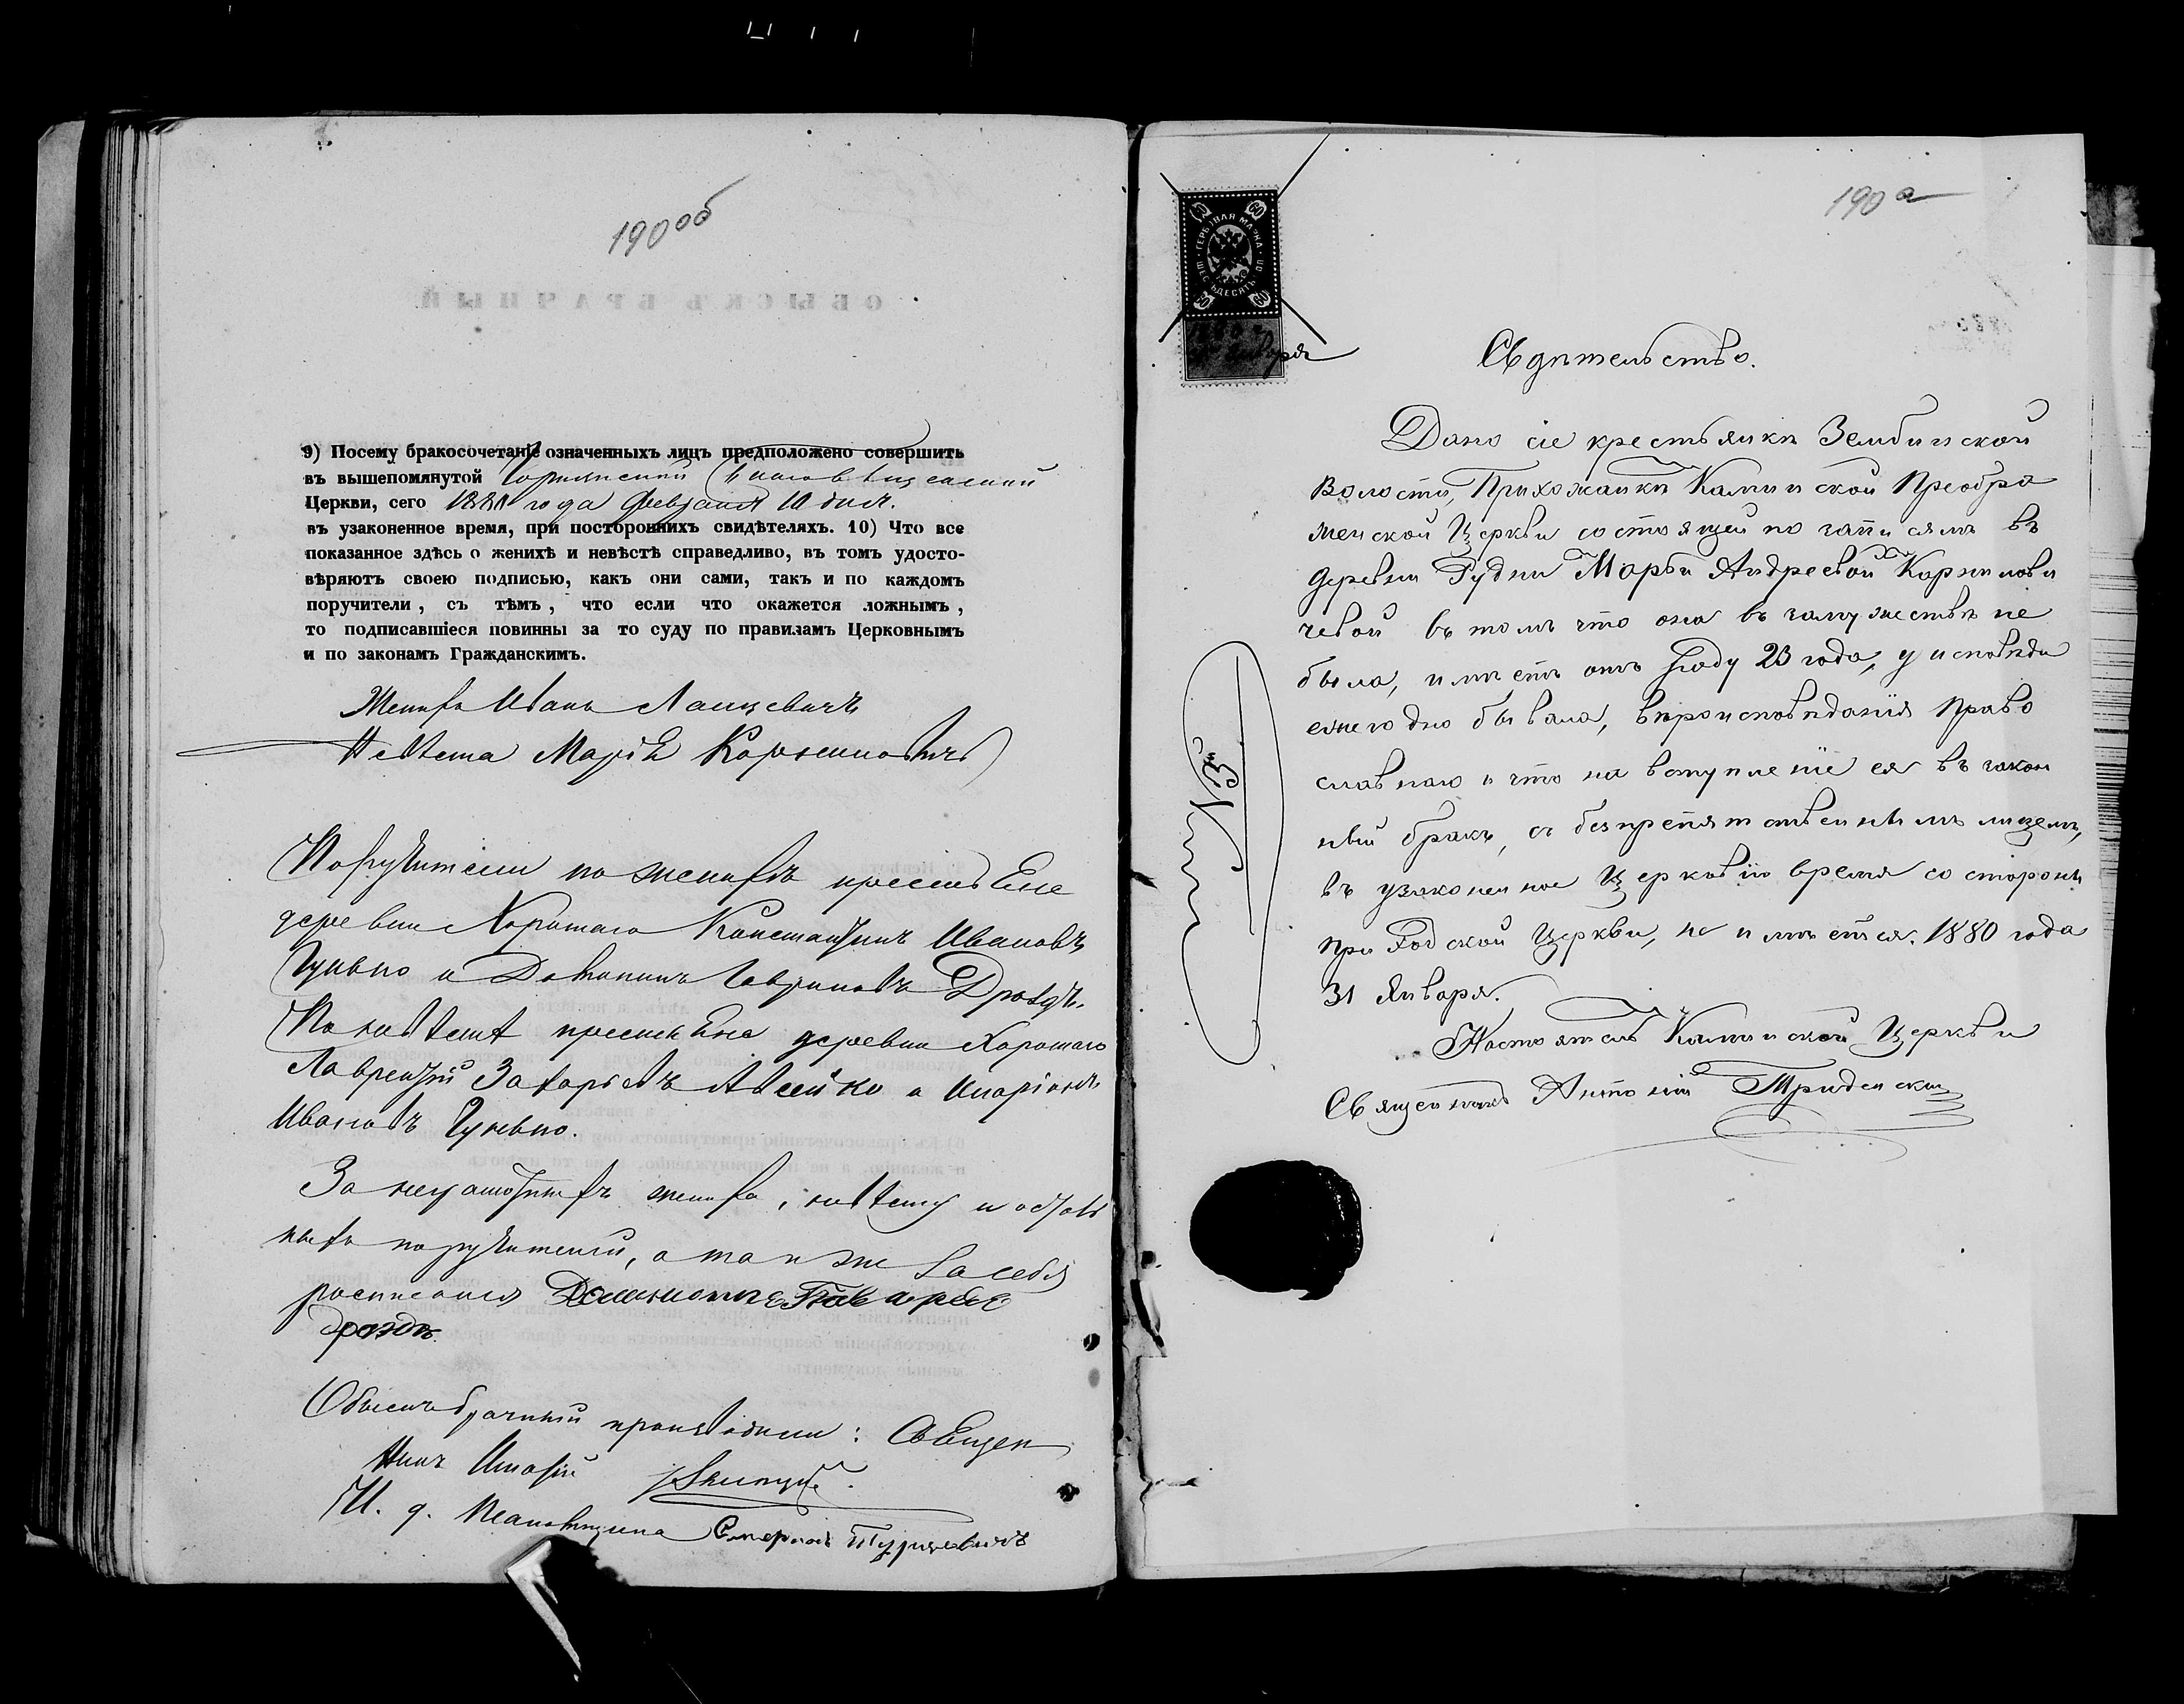 190 об
9) Посему бракосочетаніе означенныхъ лицъ предположено совершить
въ вышепомянутой
Церкви, сего 1880 года Февраля 10 дня.
въ узаконенное время, при постороннихъ свидѣтеляхъ. 10) Что все
показанное здѣсь о женихѣ и невѣстѣ справедливо, въ томъ удосто-
вѣряютъ своею подписью, какъ они сами, такъ и по каждомъ
поручители, съ тѣмъ, что если что окажется ложнымъ,
то подписавшіеся повинны за то суду по правиламъ Церковнымъ
и по законамъ Гражданскимъ.
Женихъ Иванъ Лапцевичъ
Невѣста Марія Корниловичъ
Поручители по женихѣ крестьяне
деревни Хоромаго Константинъ Ивановъ
и Гавриловъ Дроздъ.
По невѣстѣ крестьяне деревни Хоромаго
Лаврентій Захаріевъ Авсейко и Иларіонъ
Ивановъ
За неграмотныхъ жениха, невѣсту и
ныхъ поручителей, а также за себя
росписался
дроздъ.
Обыскъ брачный производили: Священ
никъ
И. д. Псаломщика Турцевичъ
190 а
ГЕРБОВАЯ МАРКА
60 60
ШЕСТЬДЕСЯТЪ
60 60
Января
Свдѣтельство.
Дано сіе крестьянкѣ Зембинской
Волости, Прихожанкѣ Каминской Преобра
женской Церкви состоящей по записямъ въ
деревни Рудни Марьи Андреевой Корнилови
чевой въ томъ что она въ замужествѣ не
была, имѣетъ отъ роду 23 года, у исповѣди
ежегодно бывала, вѣроисповѣданія Право
славнаго и что на вступленіе ея въ закон
ный бракъ, съ безпрепятственнымъ лицемъ,
въ узаконенное Церковію время со стороны
при Родской Церкви, не имѣется. 1880 года
31 Января.
Настоятель Каминской Церкви
Священникъ Антоній
№ 3й